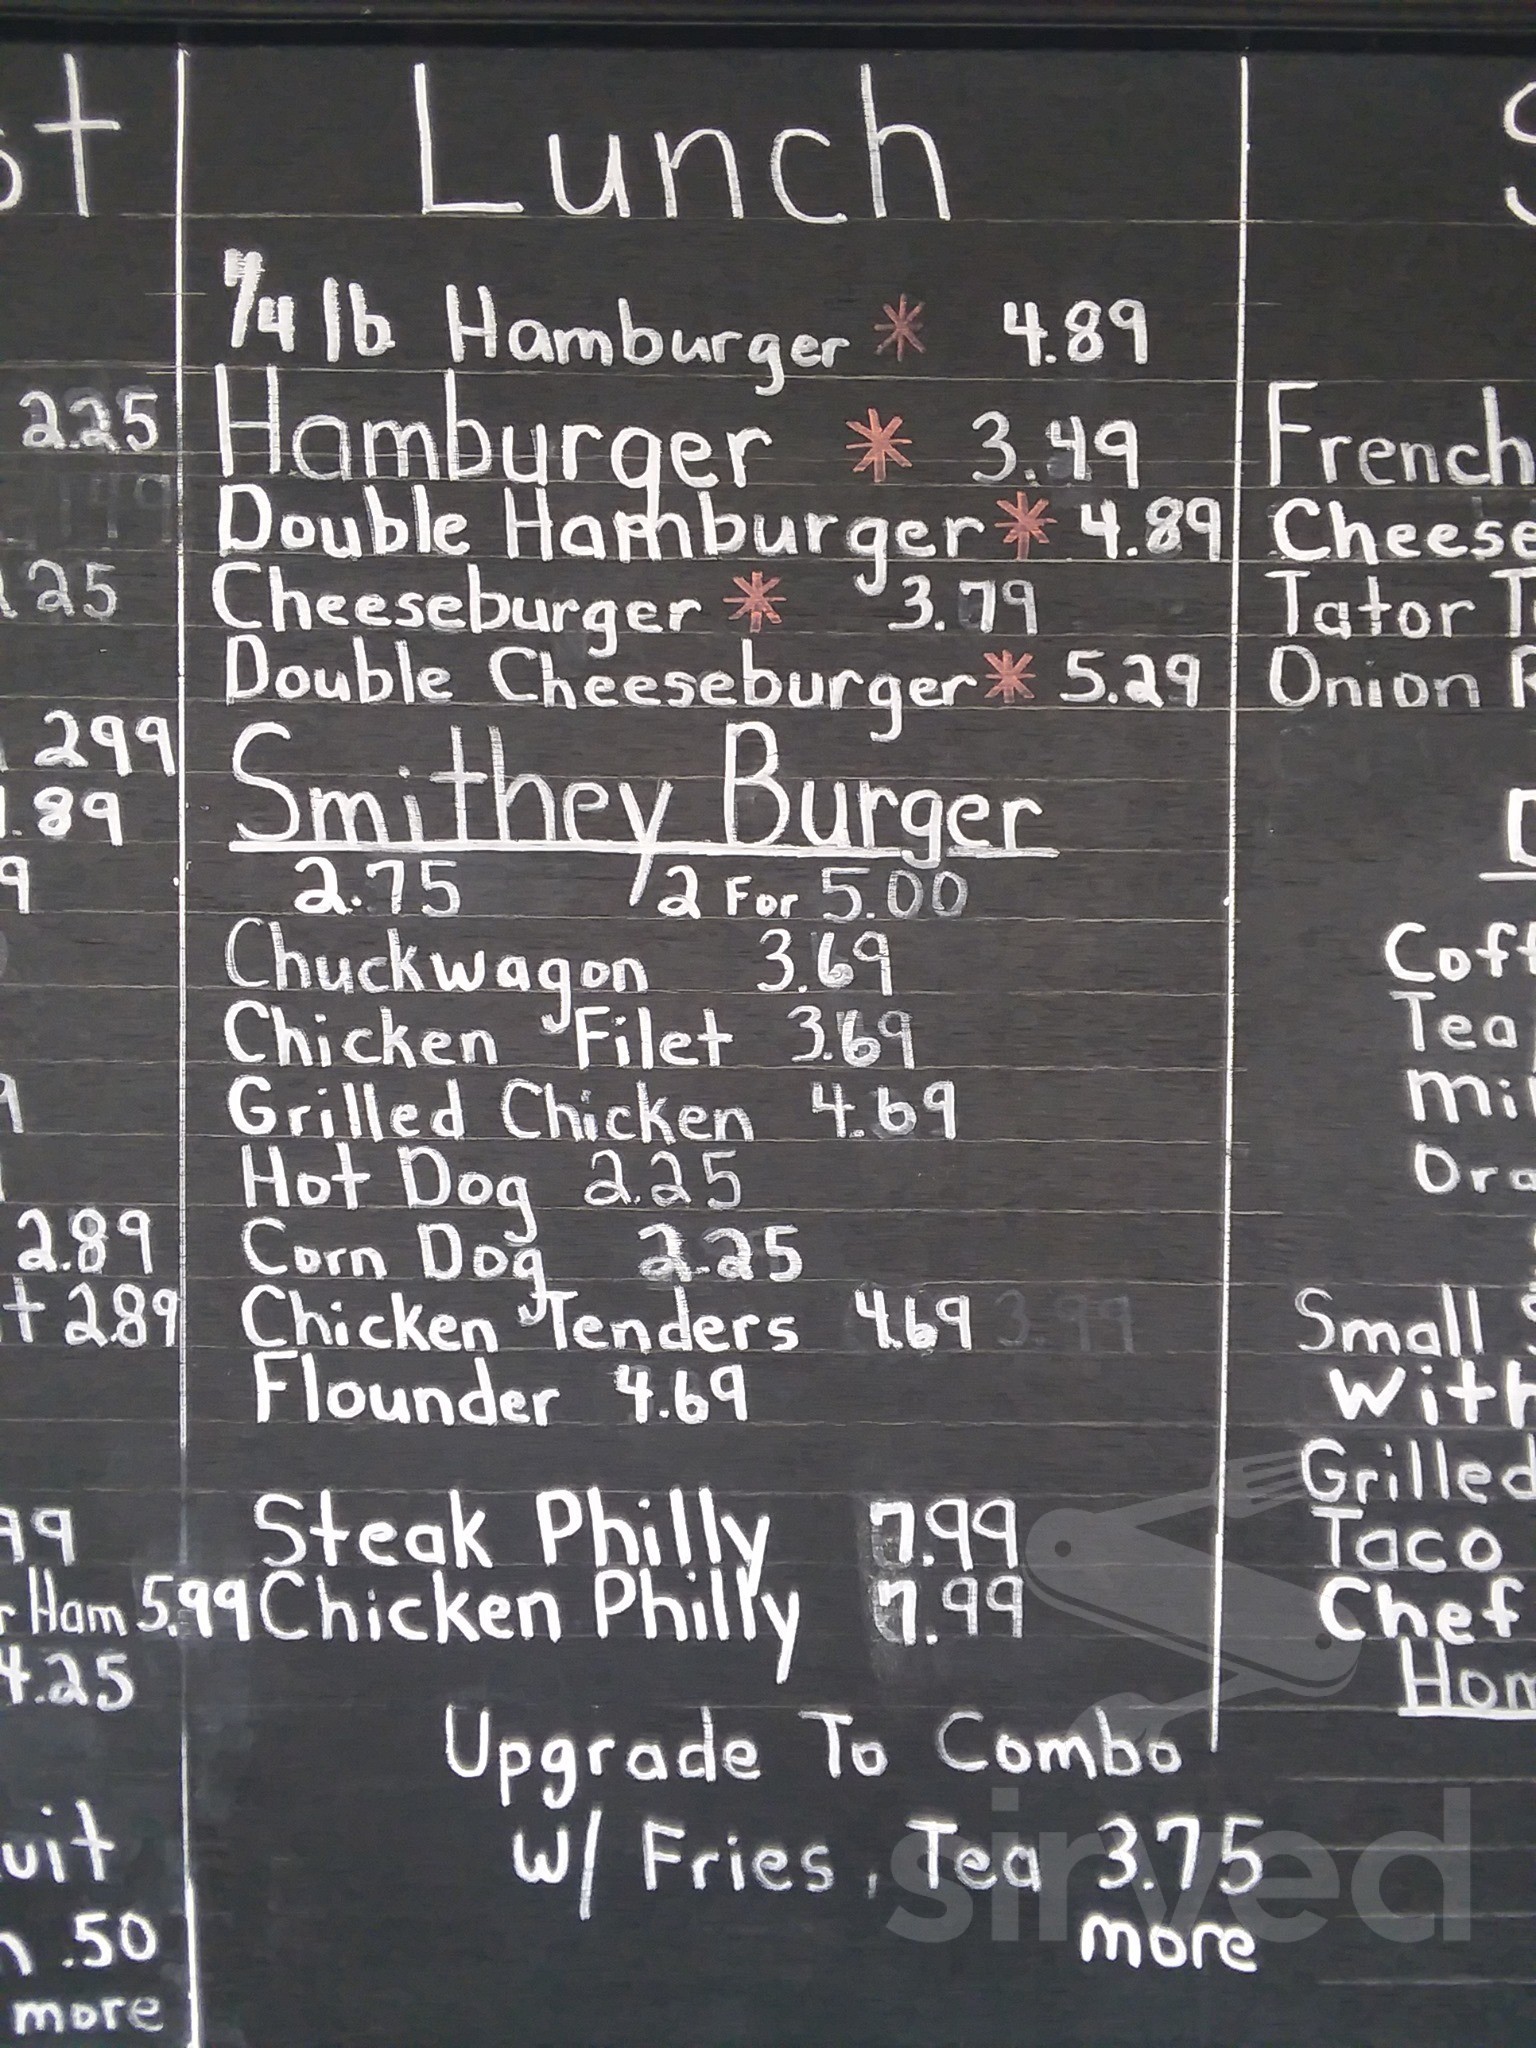 st
2.25
2.25
2.99
1.89
9
9
2.89
t 2.89
99
r Ham 5.99
4.25
uit
.50
more
Lunch
1/4 lb Hamburger * 4.89
Hamburger * 3.49
Double Hamburger * 4.89
Cheeseburger * 3.79
Double Cheeseburger * 5.29
Smithey Burger
2.75 2 For 5.00
Chuckwagon 3.69
Chicken Filet 3.69
Grilled Chicken 4.69
Hot Dog 2.25
Corn Dog 2.25
Chicken Tenders 4.69 3.99
Flounder 4.69
Steak Philly 7.99
Chicken Philly 7.99
Upgrade To Combo
w/ Fries, Tea 3.75
more
French
Cheese
Tator T
Onion R
Coff
Tea
Mi
Ora
Small S
With
Grilled
Taco
Chef
Hom
sirved